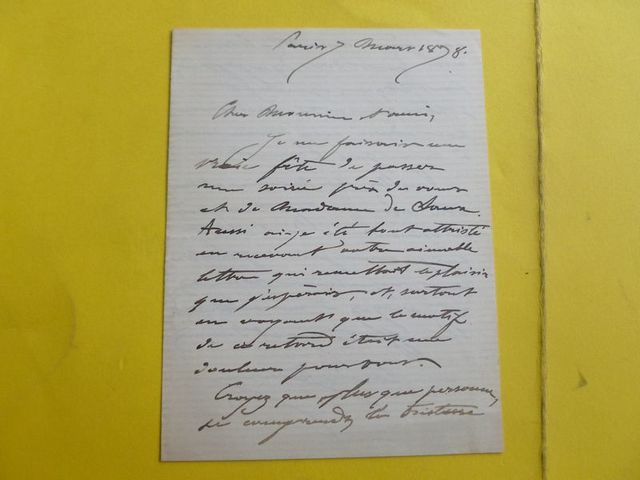 Paris 7 Mars 1878.
Cher Monsieur
Je me faisais une
vraie fête de passer
une soirée près de vous
et de Madame de
Aussi ai-je été tout attristé
en recevant votre aimable
lettre qui remettait le plaisir
que j'espérais, et, surtout
en voyant que le motif
de ce retard était une
douleur pour vous.
Croyez que, plus que personne,
je comprends la tristesse